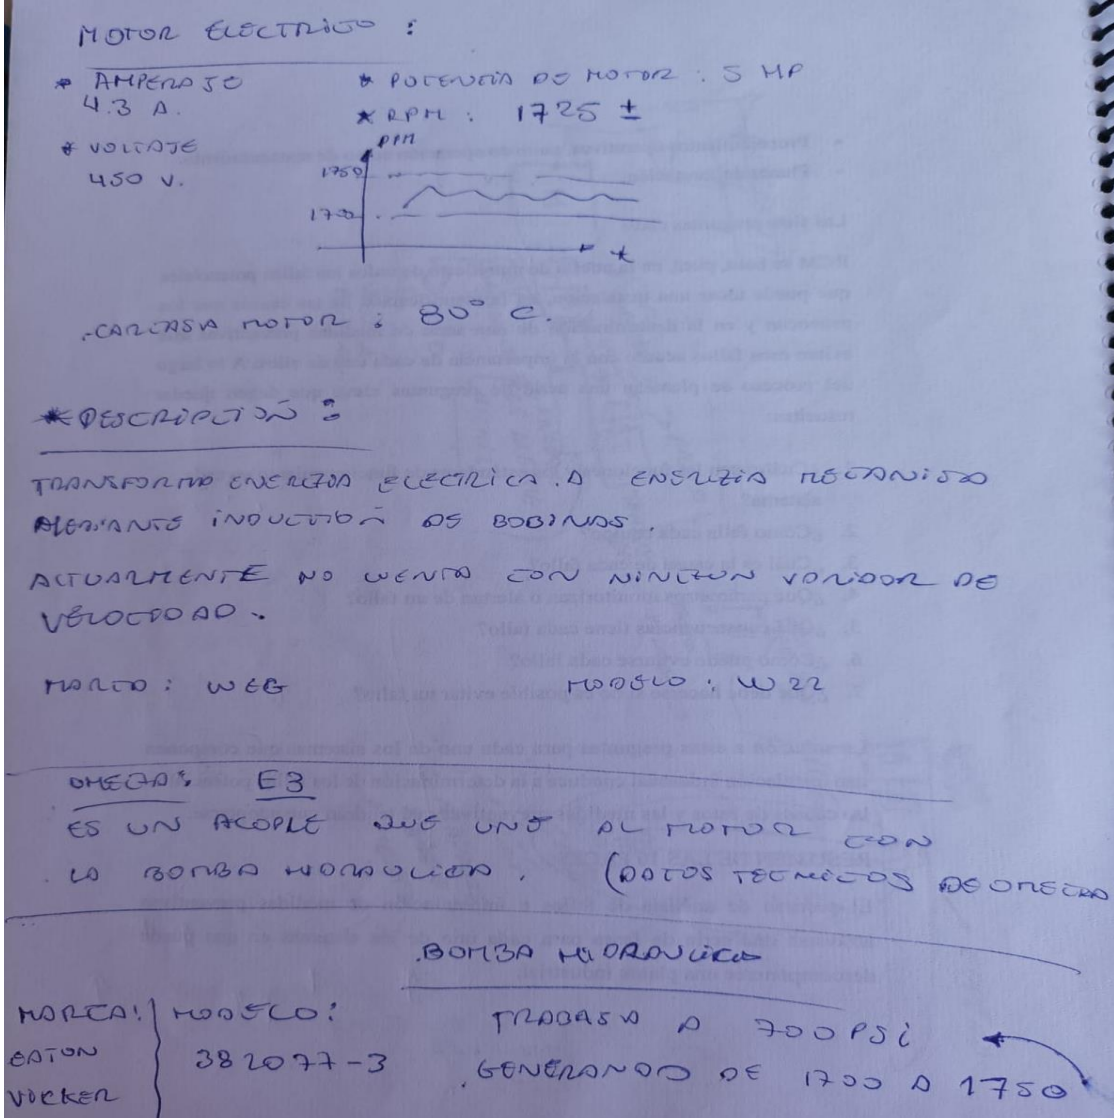 MOTOR ELECTRICO :
* AMPERAJE
4.3 A.
* VOLTAJE
450 V.
* POTENCIA DE MOTOR : 5 HP
* RPM : 1725 ±
RPM
1750
1700
t
.CARCASA MOTOR : 80° C.
* DESCRIPCION :
TRANSFORMA ENERGIA ELECTRICA. A ENERGIA MECANICA
MEDIANTE INDUCCION DE BOBINAS.
ACTUALMENTE NO CUENTA CON NINGUN VARIADOR DE
VELOCIDAD.
MARCA : WEG
MODELO : W22
OMEGA : E3
ES UN ACOPLE QUE UNE AL MOTOR CON
LA BOMBA HIDRAULICA. (DATOS TECNICOS DE OMEGA
.BOMBA HIDRAULICA
MARCA :
EATON
VICKER
MODELO :
382077-3
TRABAJA A 700 PSi
.GENERANDO DE 1700 A 1750